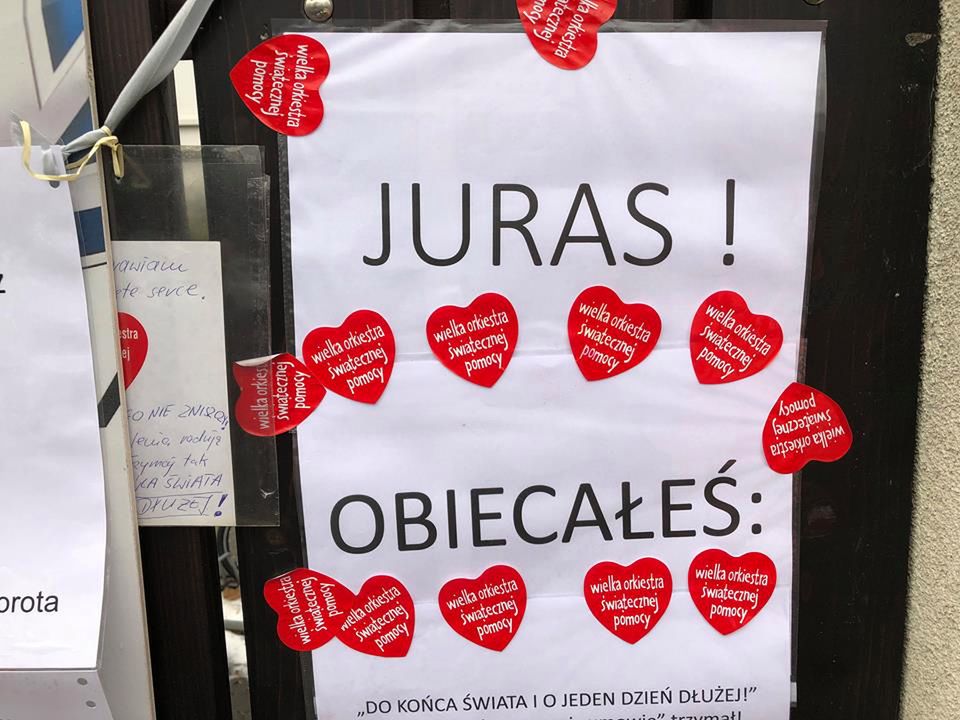 wielka orkiestra
świątecznej
pomocy
wielka orkiestra
świątecznej
pomocy
JURAS !
wielka orkiestra
świątecznej
pomocy
wielka orkiestra
świątecznej
pomocy
wielka orkiestra
świątecznej
pomocy
wielka orkiestra
świątecznej
pomocy
wielka orkiestra
świątecznej
pomocy
wielka orkiestra
świątecznej
pomocy
OBIECAŁEŚ:
wielka orkiestra
świątecznej
pomocy
wielka orkiestra
świątecznej
pomocy
wielka orkiestra
świątecznej
pomocy
wielka orkiestra
świątecznej
pomocy
wielka orkiestra
świątecznej
pomocy
„DO KOŃCA ŚWIATA I O JEDEN DZIEŃ DŁUŻEJ!”
trzymał!
serce.
NIE
tak
ŚWIATA
DŁUŻEJ!
orota